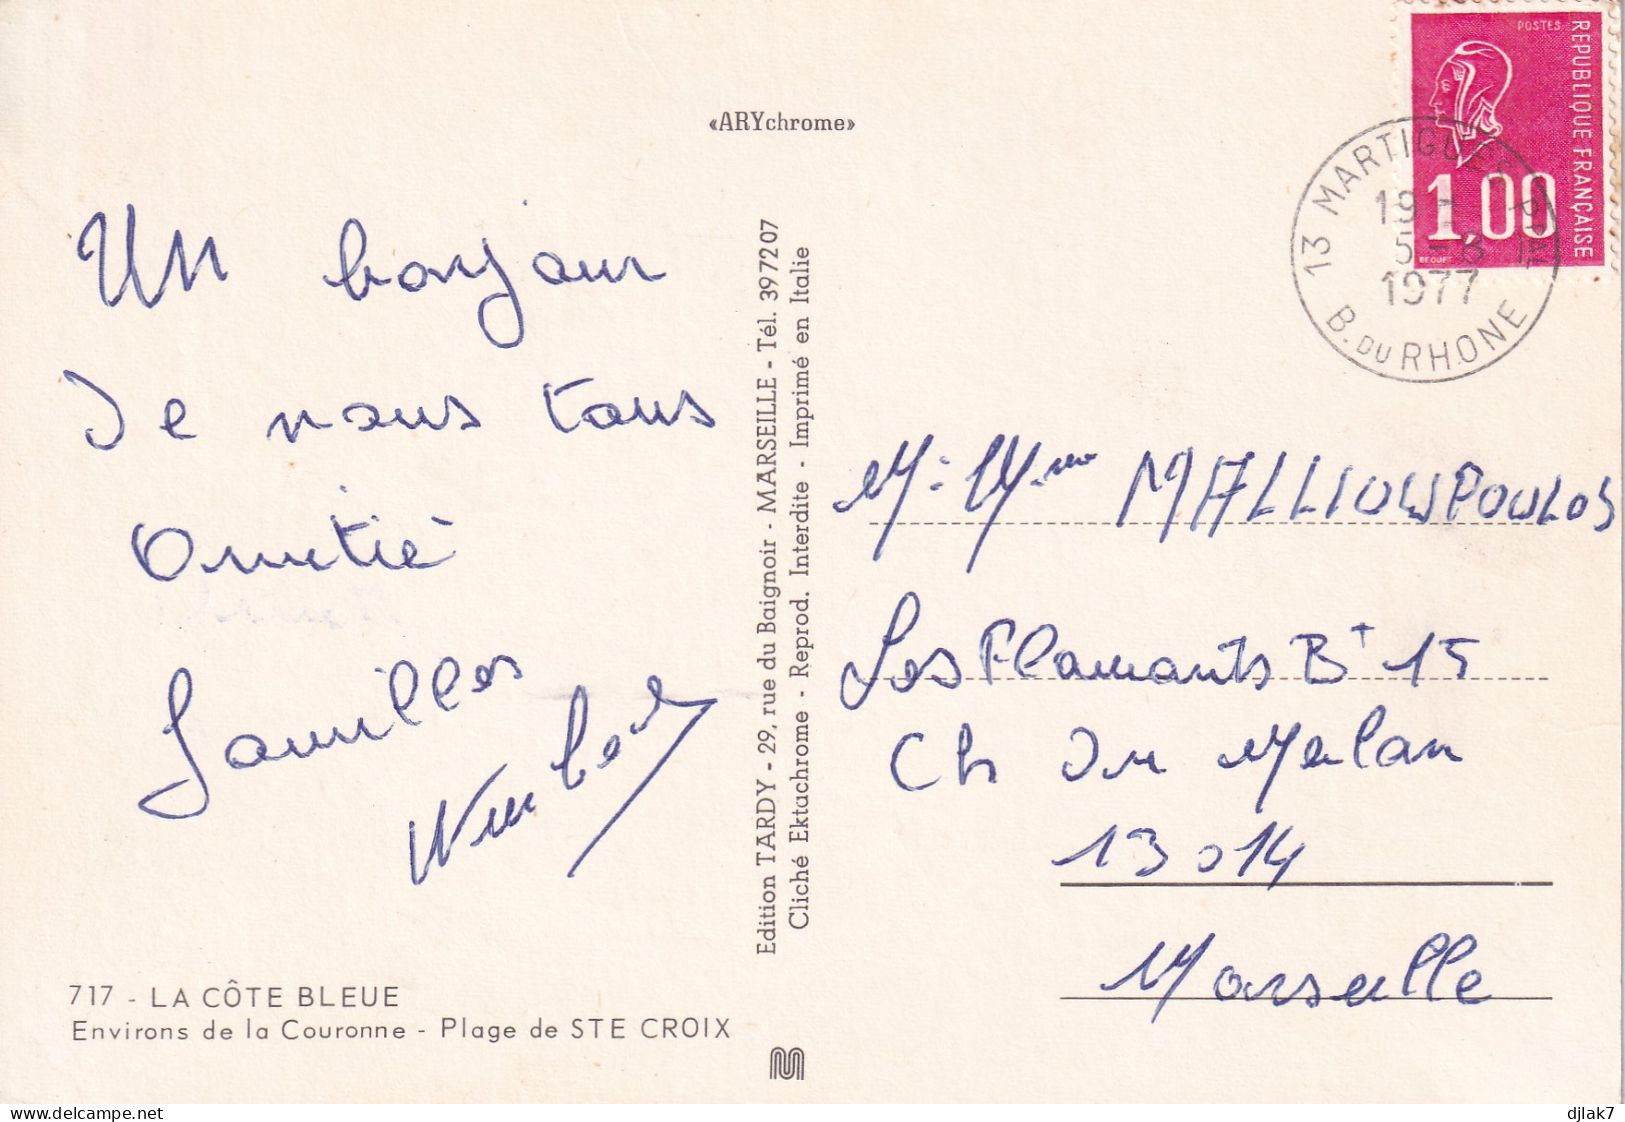 POSTES
REPUBLIQUE FRANÇAISE
1,00
BEQUET
13 MARTIGUES
19
5-8
1977
B. DU RHONE
«ARYchrome»
Un bonjour
De nous tous
Amitié
Familles
Edition TARDY - 29, rue du Baignoir - MARSEILLE - Tél. 39 72 07
Cliché Ektachrome - Reprod. Interdite - Imprimé en Italie
M. Mme MALLIOUPOULOS
Les Flamants Bt 15
Ch Du Merlan
13014
Marseille
717 - LA CÔTE BLEUE
Environs de la Couronne - Plage de STE CROIX
delcampe.net
djlak7